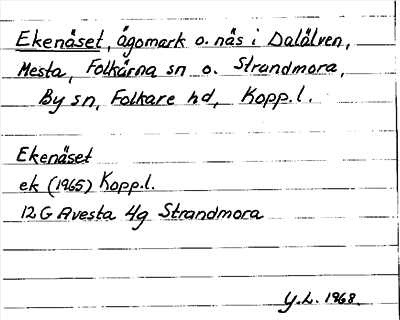 Ekenäset, ägomark o. näs i Dalälven,
Mesta, Folkärna sn o. Strandmora,
By sn, Folkare hd, Kopp.l.
Ekenäset
ek (1965) Kopp.l.
12G Avesta 4g Strandmora
Y.L. 1968.